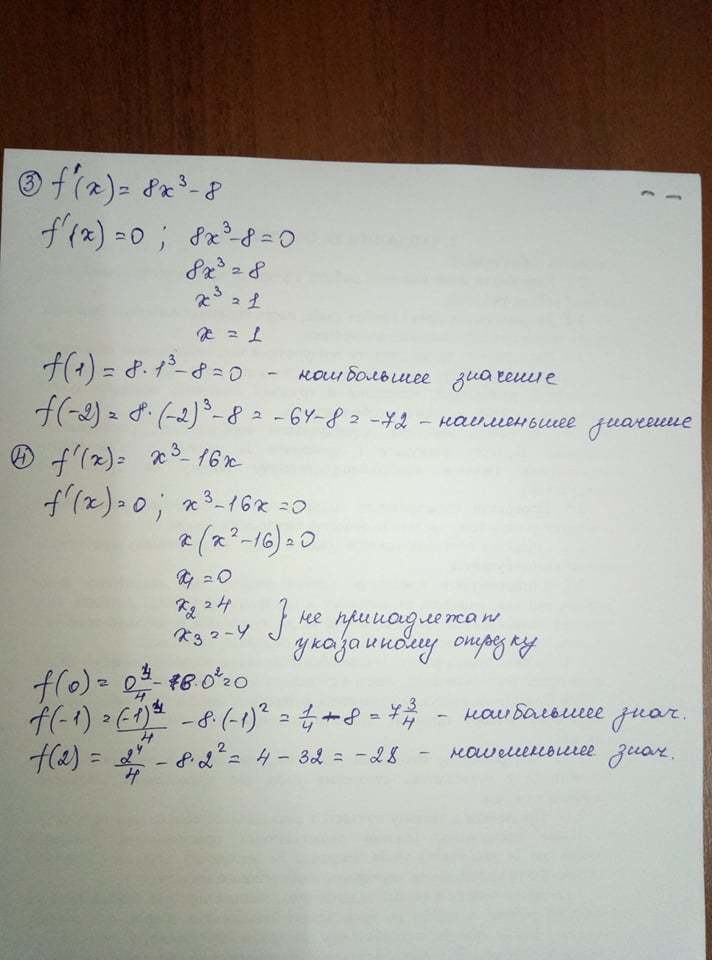 ③ f'(x) = 8x³ - 8
f'(x) = 0 ; 8x³ - 8 = 0
8x³ = 8
x³ = 1
x = 1
f(1) = 8·1³ - 8 = 0 - наибольшее значение
f(-2) = 8·(-2)³ - 8 = -64 - 8 = -72 - наименьшее значение
④ f'(x) = x³ - 16x
f'(x) = 0 ; x³ - 16x = 0
x(x² - 16) = 0
x₁ = 0
x₂ = 4 } не принадлежат
x₃ = -4 указанному отрезку
f(0) = 0⁴/4 - 8·0² = 0
f(-1) = (-1)⁴/4 - 8·(-1)² = 1/4 - 8 = 7 3/4 - наибольшее знач.
f(2) = 2⁴/4 - 8·2² = 4 - 32 = -28 - наименьшее знач.